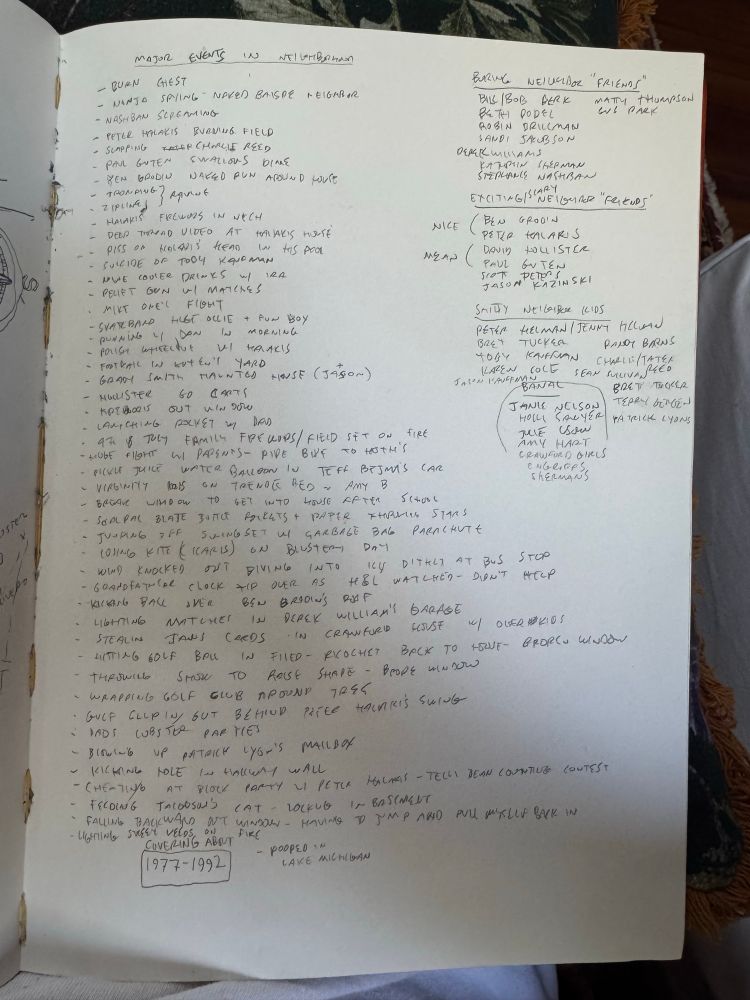 MAJOR EVENTS IN NEIGHBORHOOD
- BURN CHEST
- NINJA SPYING - NAKED NEIGHBOR
- NASHBAN SCREAMING
- PETER HALAKIS BURNING FIELD
- SLAPPING CHARLIE REED
- PAUL GUTEN SWALLOWS DIME
- BEN GRODIN NAKED RUN AROUND HOUSE
- TROMPING } RAVINE
- ZIPLING
- HALAKIS FIREWORKS IN NECH
- VIDEO AT HALAKIS HOUSE
- PISS ON HALAKIS HEAD IN HIS POOL
- SUICIDE OF TODY KAUFMAN
- WINE COOLER DRINKS W/ IRA
- PELLET GUN W/ MATCHES
- MIKE O'NEIL FIGHT
- SKATEBOARD HUGE OLLIE + FUN BOY
- RUNNING W/ DON IN MORNING
- POLISH W/ HALAKIS
- FOOTBALL IN YARD
- GRADY SMITH HAUNTED HOUSE (JASON)
- HOLLISTER GO CARTS
- OUT WINDOW
- LAUNCHING ROCKET W/ DAD
- 4TH OF JULY FAMILY FIREWORKS/FIELD SET ON FIRE
- HUGE FIGHT W/ PARENTS - RIDE BIKE TO
- PICKLE JUICE WATER BALLOON IN JEFF BEJMA'S CAR
- VIRGINITY LOSS ON TRUNDLE BED - AMY B
- BREAK WINDOW TO GET INTO HOUSE AFTER SCHOOL
- SCALPAL BLADE BOTTLE ROCKETS + PAPER THROWING STARS
- JUMPING OFF SWINGSET W/ GARBAGE BAG PARACHUTE
- LOSING KITE (ICARIS) ON BLUSTERY DAY
- WIND KNOCKED OUT DIVING INTO ICY DITCH AT BUS STOP
- GRANDFATHER CLOCK TIP OVER AS H&L WATCHED - DIDN'T HELP
- KICKING BALL OVER BEN GRODIN'S ROOF
- LIGHTING MATCHES IN DEREK WILLIAM'S GARAGE
- STEALIN JANS CARDS IN CRAWFORD HOUSE W/ OVER KIDS
- HITTING GOLF BALL IN FILED - RICOCHET BACK TO HOUSE - BROKEN WINDOW
- THROWING SHOW TO RAISE SHAPE - BROKE WINDOW
- WRAPPING GOLF CLUB AROUND TREE
- GOLF CLUP IN GUT BEHIND PETER HALAKI'S SWING
- DADS LOBSTER PARTIES
- BLOWING UP PATRICK LYON'S MAILBOX
- KICKING HOLE IN HALLWAY WALL
- CHEATING AT BLOCK PARTY W/ PETER HALAKIS - JELLY BEAN COUNTING CONTEST
- FEEDING JACOBSON'S CAT - LOCKUG IN BASEMENT
- FALLING BACKWARD OUT WINDOW - HAVING TO JUMP AND PULL MYSELF BACK IN
- LIGHTING STREET VELDS ON FIRE
COVERING ABOUT
1977-1992
- POOPED IN LAKE MICHIGAN
BORING NEIGHBOR "FRIENDS"
BILL/BOB DERK MATTY THOMPSON
BETH DODEL GUS PARK
ROBIN DRILLMAN
SANDI JACOBSON
DEREK WILLIAMS
KATHRYN SHERMAN
STEPHANIE NASHBAN
EXCITING/SCARY NEIGHBOR "FRIENDS"
NICE ( BEN GRODIN
PETER HALAKIS
MEAN ( DAVID HOLLISTER
PAUL GUTEN
SCOTT PETERS
JASON KAZINSKI
SHITTY NEIGHBOR KIDS
PETER HELMAN/JENNY HELMAN
BRET TUCKER RANDY BARNS
TODY KAUFFMAN CHARLIE/TATER REED
KAREN COLE SEAN SULLIVAN
JASON KAUFFMAN
BANAL
JANIE NELSON
HOLLI SAWYER
JULIE
AMY HART
CRAWFORD GIRLS
ENGRIFFS
SHERMANS
BRET TUCKER
TERRY
PATRICK LYONS